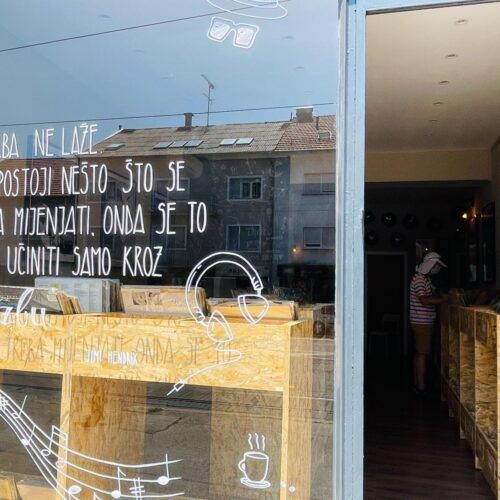 BA NE LAŽE.
POSTOJI NEŠTO ŠTO SE
A MIJENJATI, ONDA SE TO
UČINITI SAMO KROZ
zbu
TREBA MIJENJATI, ONDA SE TO
JIMI HENDRIX